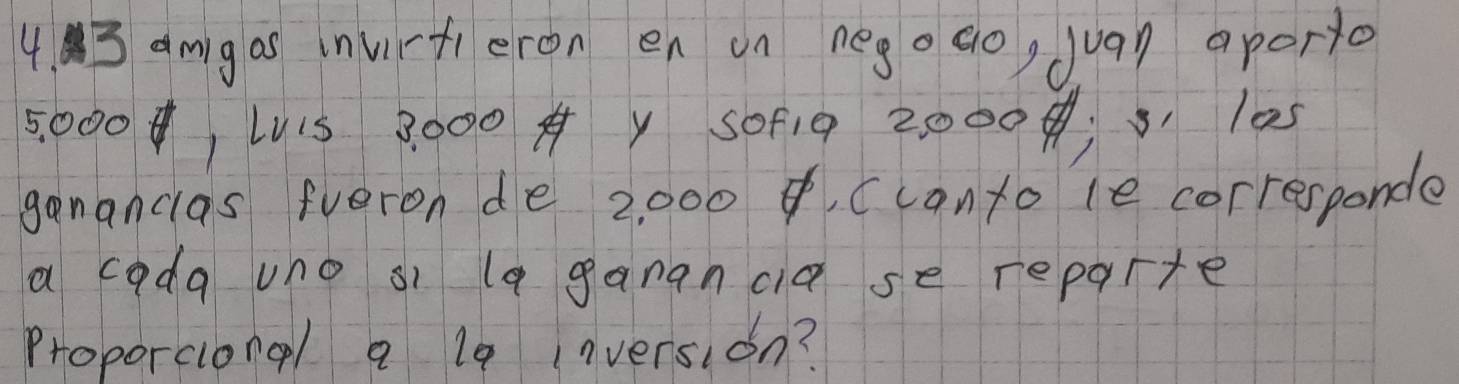 4. 3 amigos invirtieron en un negocio, Juan aporto
5.000 $, Luis 3.000 $ y sofia 2,000 $; si las
ganancias fueron de 2.000 $. Cuanto le corresponde
a cada uno si la ganancia se reparte
Proporcional a la inversión?